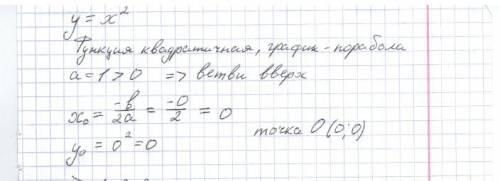 y = x²
Функция квадратичная, график - парабола
a = 1 > 0 => ветви вверх
x₀ = -b/2a = -0/2 = 0
y₀ = 0² = 0 точка O (0; 0)